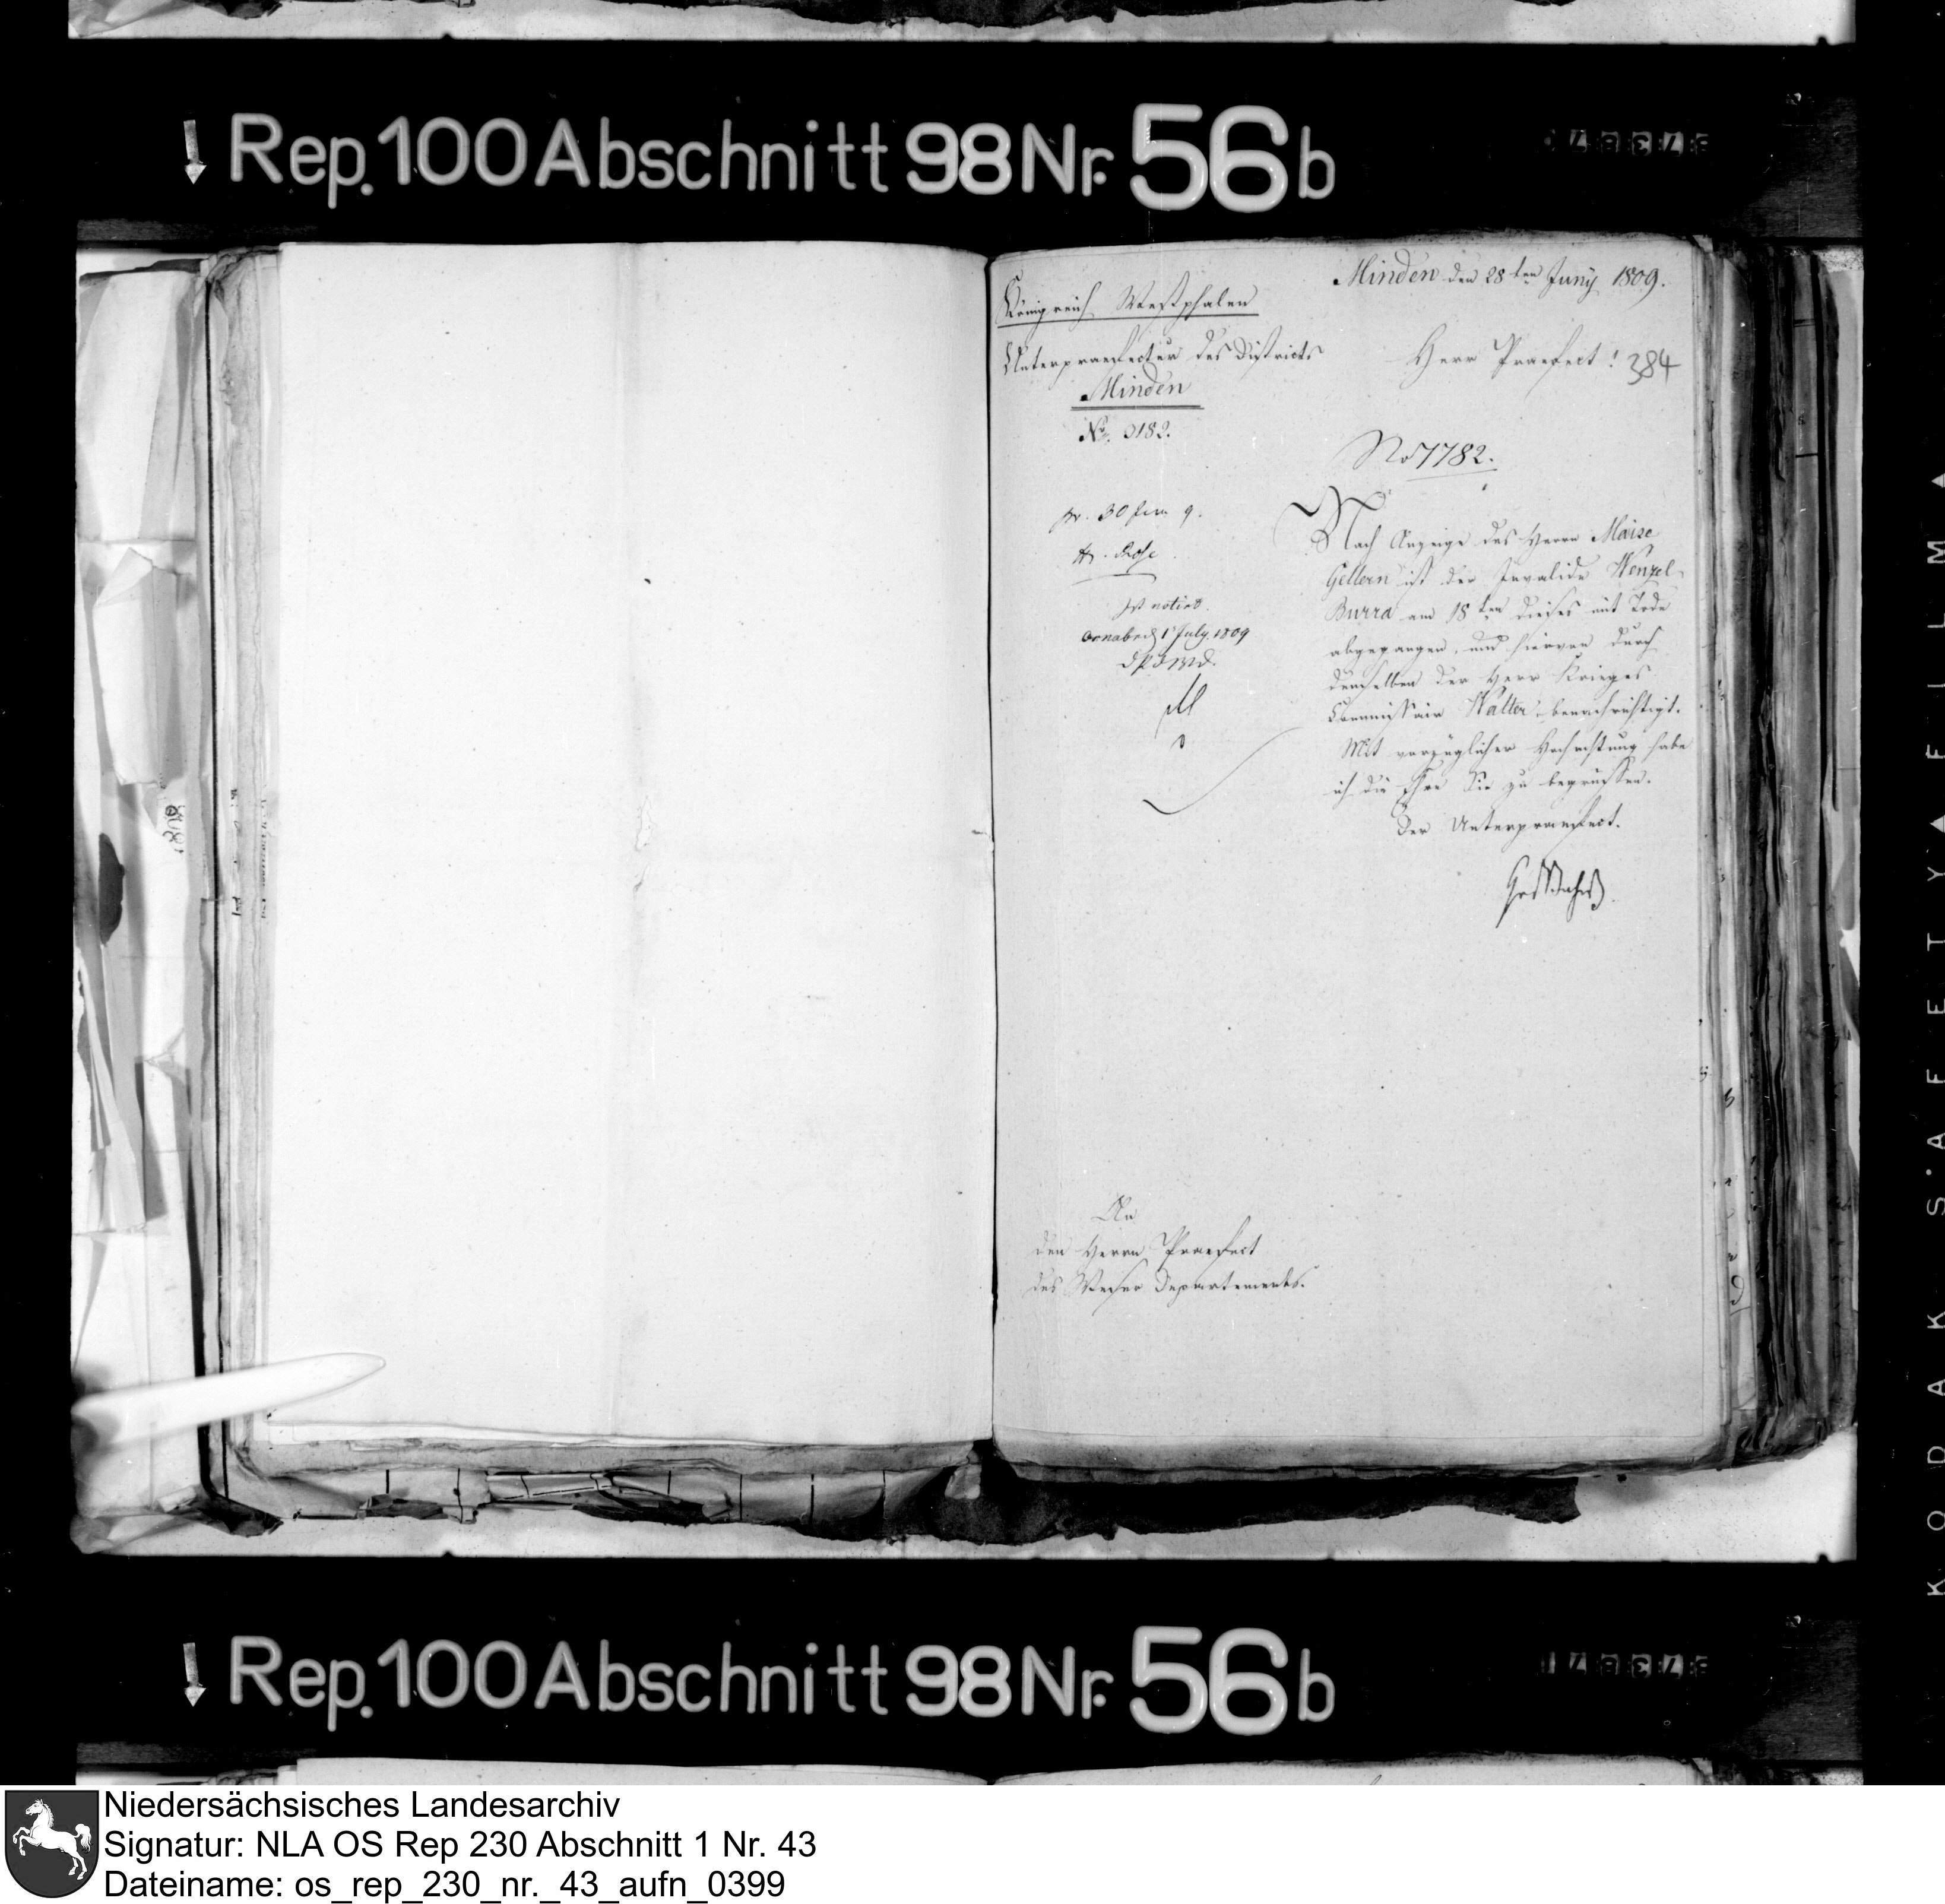 Rep. 100 Abschnitt 98 Nr. 56 b
Minden den 28ten Junÿ 1809.
Königreich Westphalen
Unterpraefectur des Districts
Minden
No. 3182.
Herr Praefect!
384
No 7782.
pr. 30 Jun 9.
Hr. Rose
Ist notirt.
Osnabrück 1 July 1809
Nach Anzeige des Herrn Maire
Gellern ist der Invalide Wenzel
Burra am 18ten dieses mit Tode
abgegangen, und hiervon durch
denselben der Herr Krieges
Commissair Walter benachrichtigt.
Mit vorzüglicher Hochachtung habe
ich die Ehre Sie zu begrüssen.
Der Unterpraefect.
An
den Herrn Praefect
des Weser Departements.
Rep. 100 Abschnitt 98 Nr. 56 b
KODAK SAFETY FILM
Niedersächsisches Landesarchiv
Signatur: NLA OS Rep 230 Abschnitt 1 Nr. 43
Dateiname: os_rep_230_nr._43_aufn_0399